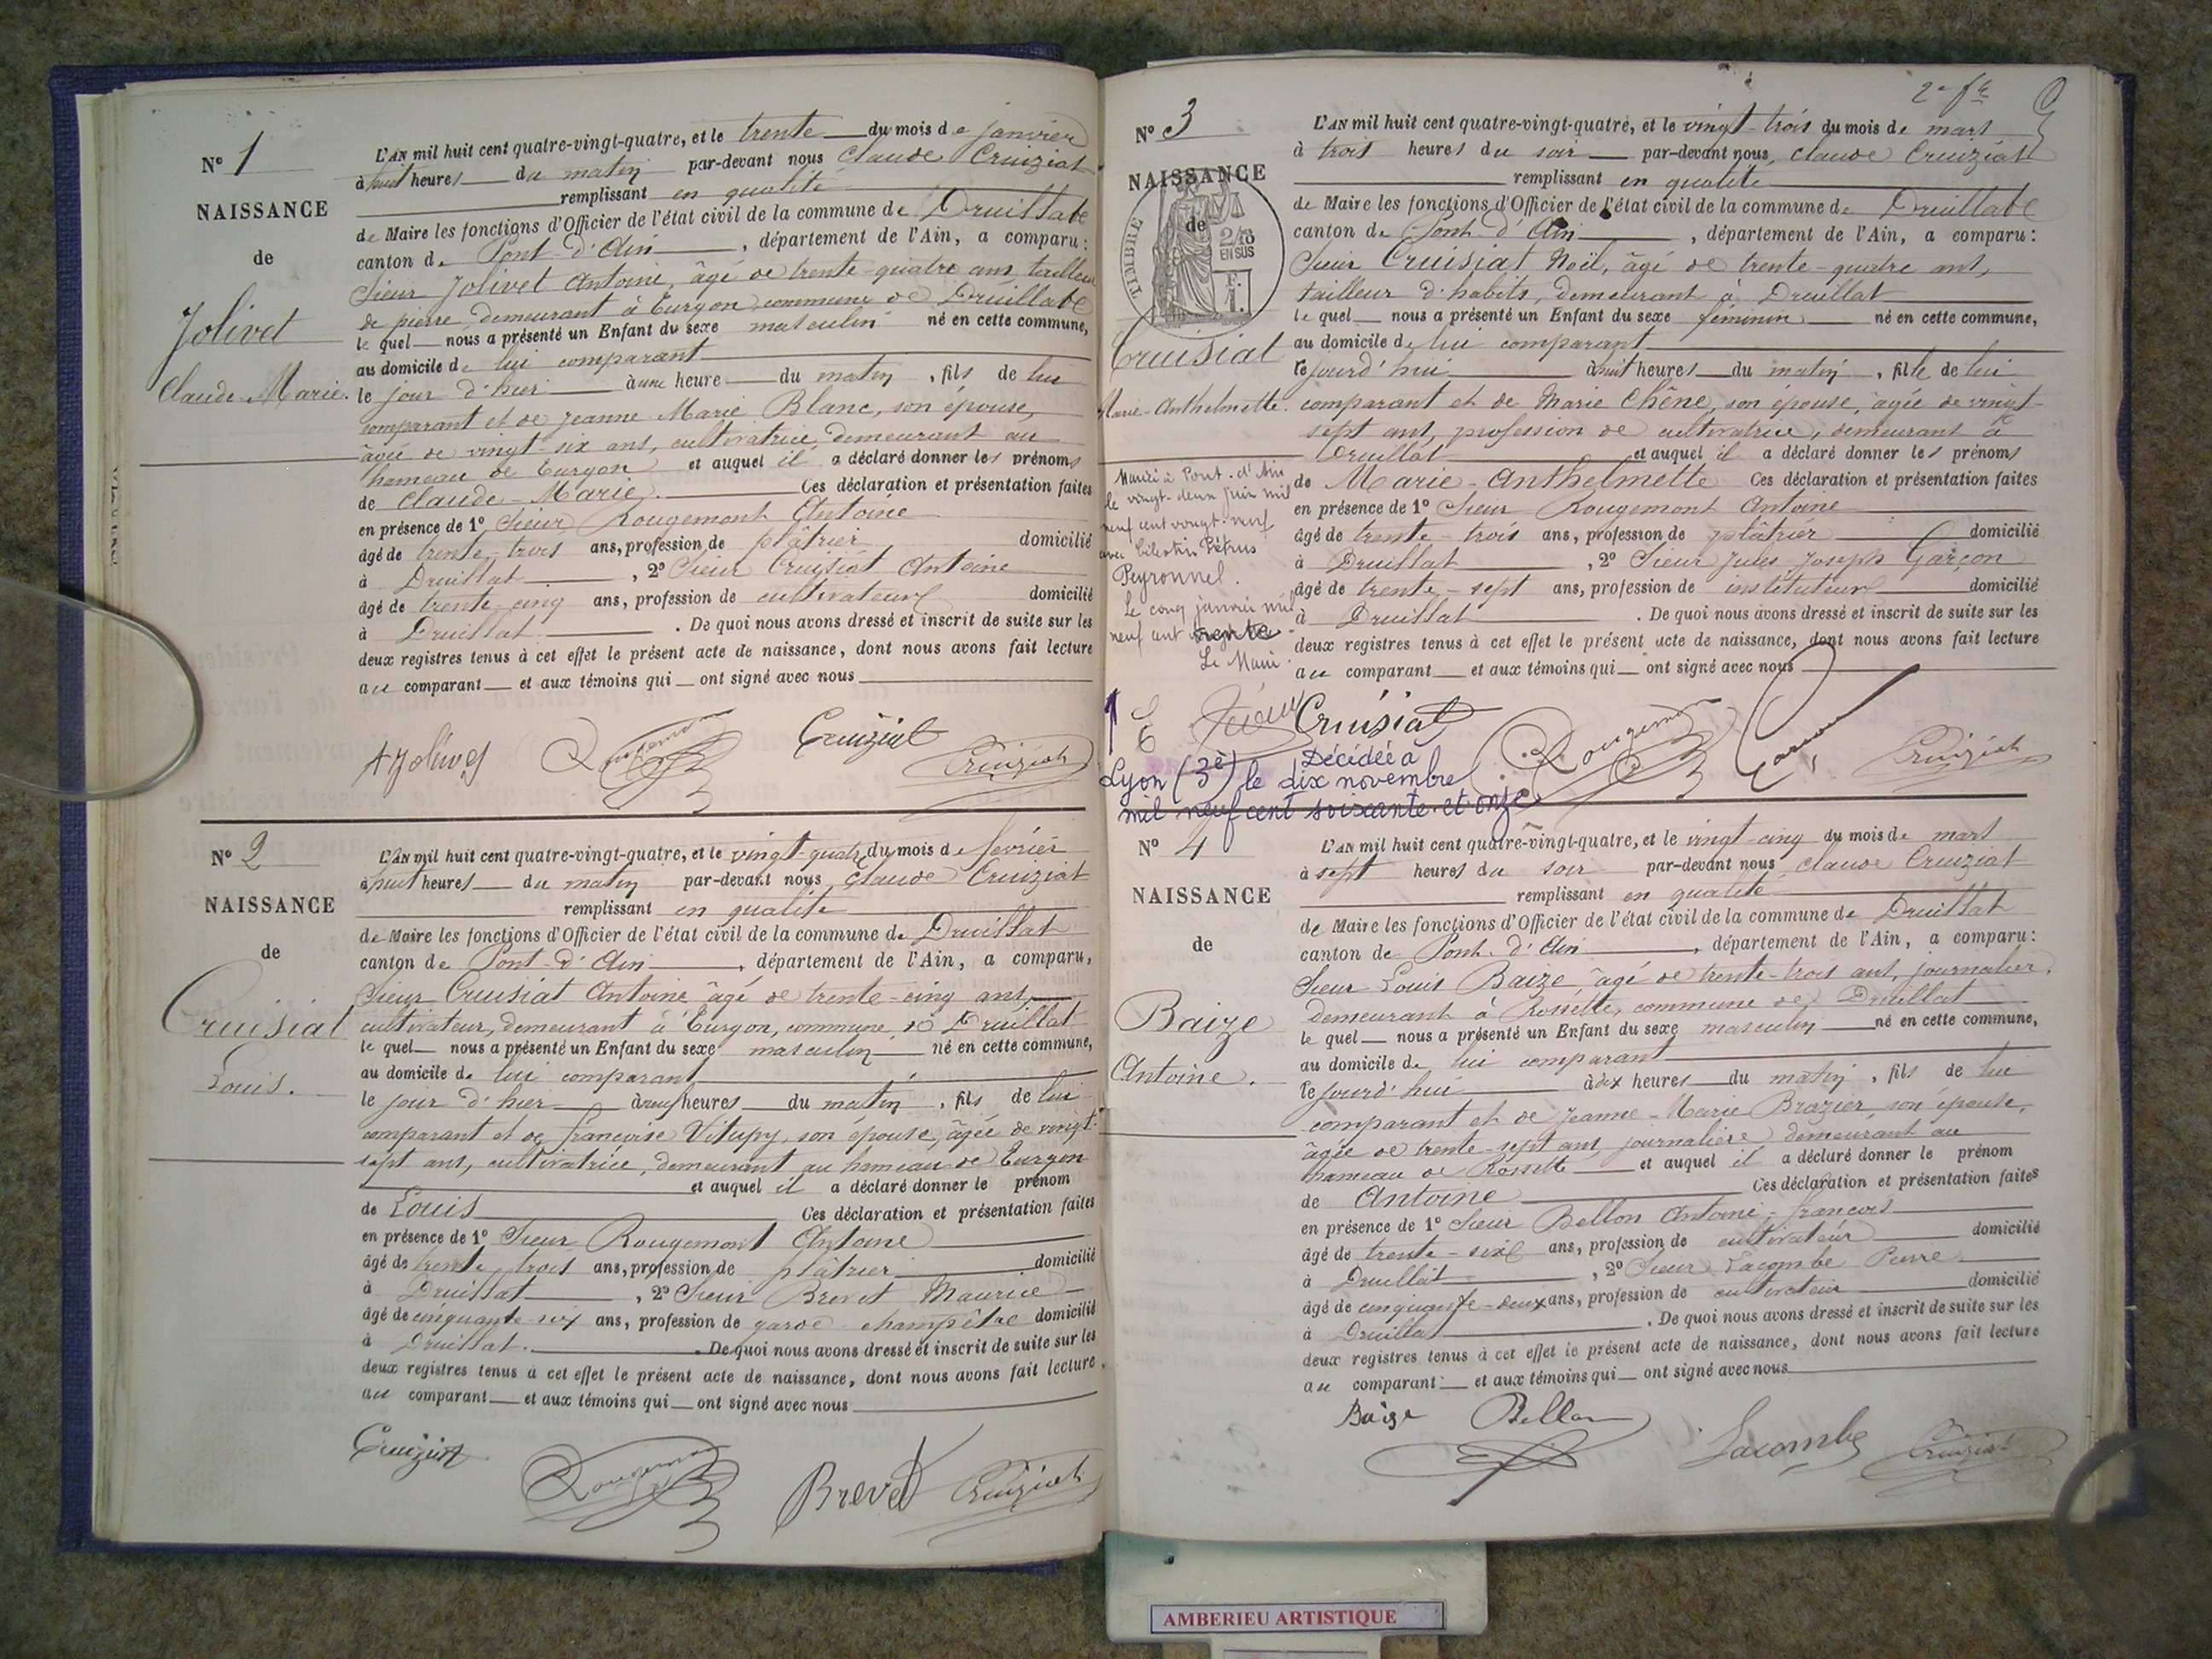 N° 1
NAISSANCE
de
Jolivet
Claude-Marie.
L'AN mil huit cent quatre-vingt-quatre, et le trente du mois de janvier
à huit heures du matin par-devant nous Claude Cruiziat
remplissant en qualité
de Maire les fonctions d'Officier de l'état civil de la commune de Druillat
canton de Pont-d'Ain, département de l'Ain, a comparu:
Sieur Jolivet Antoine, âgé de trente-quatre ans, tailleur
de pierre, demeurant à Turgon, commune de Druillat
le quel nous a présenté un Enfant du sexe masculin né en cette commune,
au domicile de lui comparant
le jour d'hier à une heure du matin, fils de lui
comparant et de Jeanne Marie Blanc, son épouse,
âgée de vingt-six ans, cultivatrice, demeurant au
hameau de Turgon et auquel il a déclaré donner les prénoms
de Claude-Marie. Ces déclaration et présentation faites
en présence de 1° Sieur Rougemont Antoine
âgé de trente-trois ans, profession de plâtrier domicilié
à Druillat, 2° Sieur Cruisiat Antoine
âgé de trente-cinq ans, profession de cultivateur domicilié
à Druillat. De quoi nous avons dressé et inscrit de suite sur les
deux registres tenus à cet effet le présent acte de naissance, dont nous avons fait lecture
au comparant et aux témoins qui ont signé avec nous
A Jolivet Rougemont Cruiziat Cruiziat
N° 2
NAISSANCE
de
Cruisiat
Louis.
L'AN mil huit cent quatre-vingt-quatre, et le vingt-quatre du mois de février
à huit heures du matin par-devant nous Claude Cruiziat
remplissant en qualité
de Maire les fonctions d'Officier de l'état civil de la commune de Druillat
canton de Pont-d'Ain, département de l'Ain, a comparu,
Sieur Cruisiat Antoine âgé de trente-cinq ans,
cultivateur, demeurant à Turgon, commune de Druillat
le quel nous a présenté un Enfant du sexe masculin né en cette commune,
au domicile de lui comparant
le jour d'hier à neuf heures du matin, fils de lui
comparant et de françoise Vitupy, son épouse, âgée de vingt-
sept ans, cultivatrice, demeurant au hameau de Turgon
et auquel il a déclaré donner le prénom
de Louis Ces déclaration et présentation faites
en présence de 1° Sieur Rougemont Antoine
âgé de trente trois ans, profession de plâtrier domicilié
à Druillat, 2° Sieur Brevet Maurice
âgé de cinquante-six ans, profession de garde champêtre domicilié
à Druillat. De quoi nous avons dressé et inscrit de suite sur les
deux registres tenus à cet effet le présent acte de naissance, dont nous avons fait lecture
au comparant et aux témoins qui ont signé avec nous
Cruiziat Rougemont Brevet Cruiziat
2e fe
N° 3
NAISSANCE
de
TIMBRE
2/10
EN SUS
F.
1.
Cruisiat
Marie-Anthelmette.
L'AN mil huit cent quatre-vingt-quatre, et le vingt-trois du mois de mars
à trois heures du soir par-devant nous, Claude Cruiziat
remplissant en qualité
de Maire les fonctions d'Officier de l'état civil de la commune de Druillat
canton de Pont d'Ain, département de l'Ain, a comparu:
Sieur Cruisiat Noël, âgé de trente-quatre ans,
tailleur d'habits, demeurant à Druillat
le quel nous a présenté un Enfant du sexe féminin né en cette commune,
au domicile de lui comparant
ce jourd'hui à huit heures du matin, fille de lui
comparant et de Marie Chêne, son épouse, âgée de vingt-
sept ans, profession de cultivatrice, demeurant à
Druillat et auquel il a déclaré donner les prénoms
de Marie-Anthelmette Ces déclaration et présentation faites
en présence de 1° Sieur Rougemont Antoine
âgé de trente-trois ans, profession de plâtrier domicilié
à Druillat, 2° Sieur Jules Joseph Garçon
âgé de trente-sept ans, profession de instituteur domicilié
à Druillat. De quoi nous avons dressé et inscrit de suite sur les
deux registres tenus à cet effet le présent acte de naissance, dont nous avons fait lecture
au comparant et aux témoins qui ont signé avec nous
Mariée à Pont-d'Ain
le vingt-deux juin mil
neuf cent vingt-neuf
avec Célestin Pétrus
Peyronnel.
Le cinq janvier mil
neuf cent trente
Le Maire
Cruisiat Rougemont Garçon Cruiziat
Décédée à
Lyon (3e) le dix novembre
mil neuf cent soixante et onze
N° 4
NAISSANCE
de
Baize
Antoine.
L'AN mil huit cent quatre-vingt-quatre, et le vingt-cinq du mois de mars
à sept heures du soir par-devant nous, Claude Cruiziat
remplissant en qualité
de Maire les fonctions d'Officier de l'état civil de la commune de Druillat
canton de Pont-d'Ain, département de l'Ain, a comparu:
Sieur Louis Baize, âgé de trente-trois ans, journalier,
demeurant à Rossette, commune de Druillat
le quel nous a présenté un Enfant du sexe masculin né en cette commune,
au domicile de lui comparant
ce jourd'hui à dix heures du matin, fils de lui
comparant et de Jeanne-Marie Brazier, son épouse,
âgée de trente-sept ans, journalière, demeurant au
hameau de Rossette et auquel il a déclaré donner le prénom
de Antoine Ces déclaration et présentation faites
en présence de 1° Sieur Bellon Antoine-françois
âgé de trente-six ans, profession de cultivateur domicilié
à Druillat, 2° Sieur Lacombe Pierre
âgé de cinquante-deux ans, profession de cultivateur domicilié
à Druillat. De quoi nous avons dressé et inscrit de suite sur les
deux registres tenus à cet effet le présent acte de naissance, dont nous avons fait lecture
au comparant et aux témoins qui ont signé avec nous
Baize Bellon Lacombe Cruiziat
AMBERIEU ARTISTIQUE